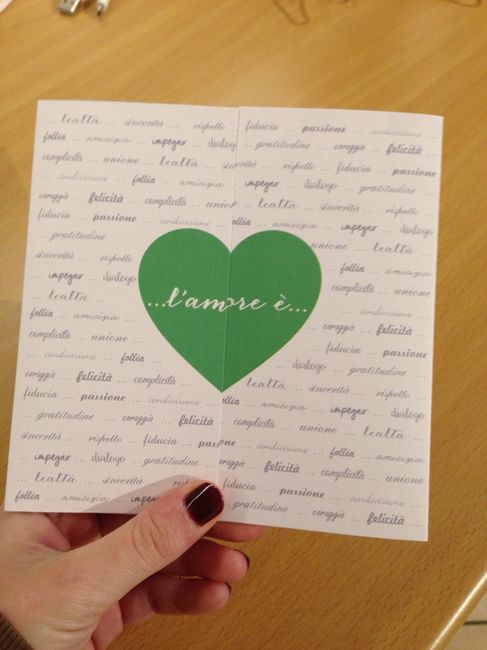 ... lealtà ... sincerità ... rispetto ... fiducia ... passione ... condivisione
follia ... amicizia ... impegno ... dialogo ... gratitudine ... coraggio ... felicità ...
complicità ... unione ... lealtà ... sincerità ... rispetto ... fiducia ... passione ...
... condivisione ... follia ... amicizia ... impegno ... dialogo ... gratitudine ...
coraggio ... felicità ... complicità ... unione ... lealtà ... sincerità ... rispetto ...
fiducia ... passione ... condivisione ... follia ... amicizia ... impegno ... dialogo
... gratitudine unione ... lealtà ...
sincerità ... rispetto fiducia ...
... impegno ... dialogo follia ... amicizia ...
...l'amore è...
... lealtà ... gratitudine ...
... amicizia ...
complicità ... unione ... coraggio ... felicità
... condivisione ... follia ... fiducia ... passione
coraggio ... felicità ... complicità ... dialogo ... gratitudine ...
fiducia ... passione ... condivisione ... lealtà ... sincerità ... rispetto ...
... gratitudine ... coraggio ... felicità follia ... amicizia ... impegno ... dialogo
sincerità ... rispetto ... fiducia ... passione complicità ... unione ... lealtà ...
... impegno ... dialogo ... gratitudine ... condivisione ... follia ...
... lealtà ... sincerità coraggio ... felicità ... complicità ... unione
follia ... amicizia ... impegno fiducia ... passione ... condivisione ...
... gratitudine ... coraggio ... felicità ...